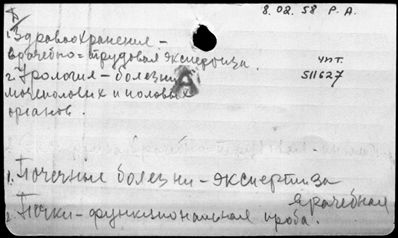 8.02.58 Р.А.
А
1. Здравоохранение –
врачебно-трудовая экспертиза.
чит.
2. Урология – болезни
511627
А
мочеполовых и половых
органов.
1. Почечные болезни – экспертиза
врачебная
2. Почки – функциональная проба.